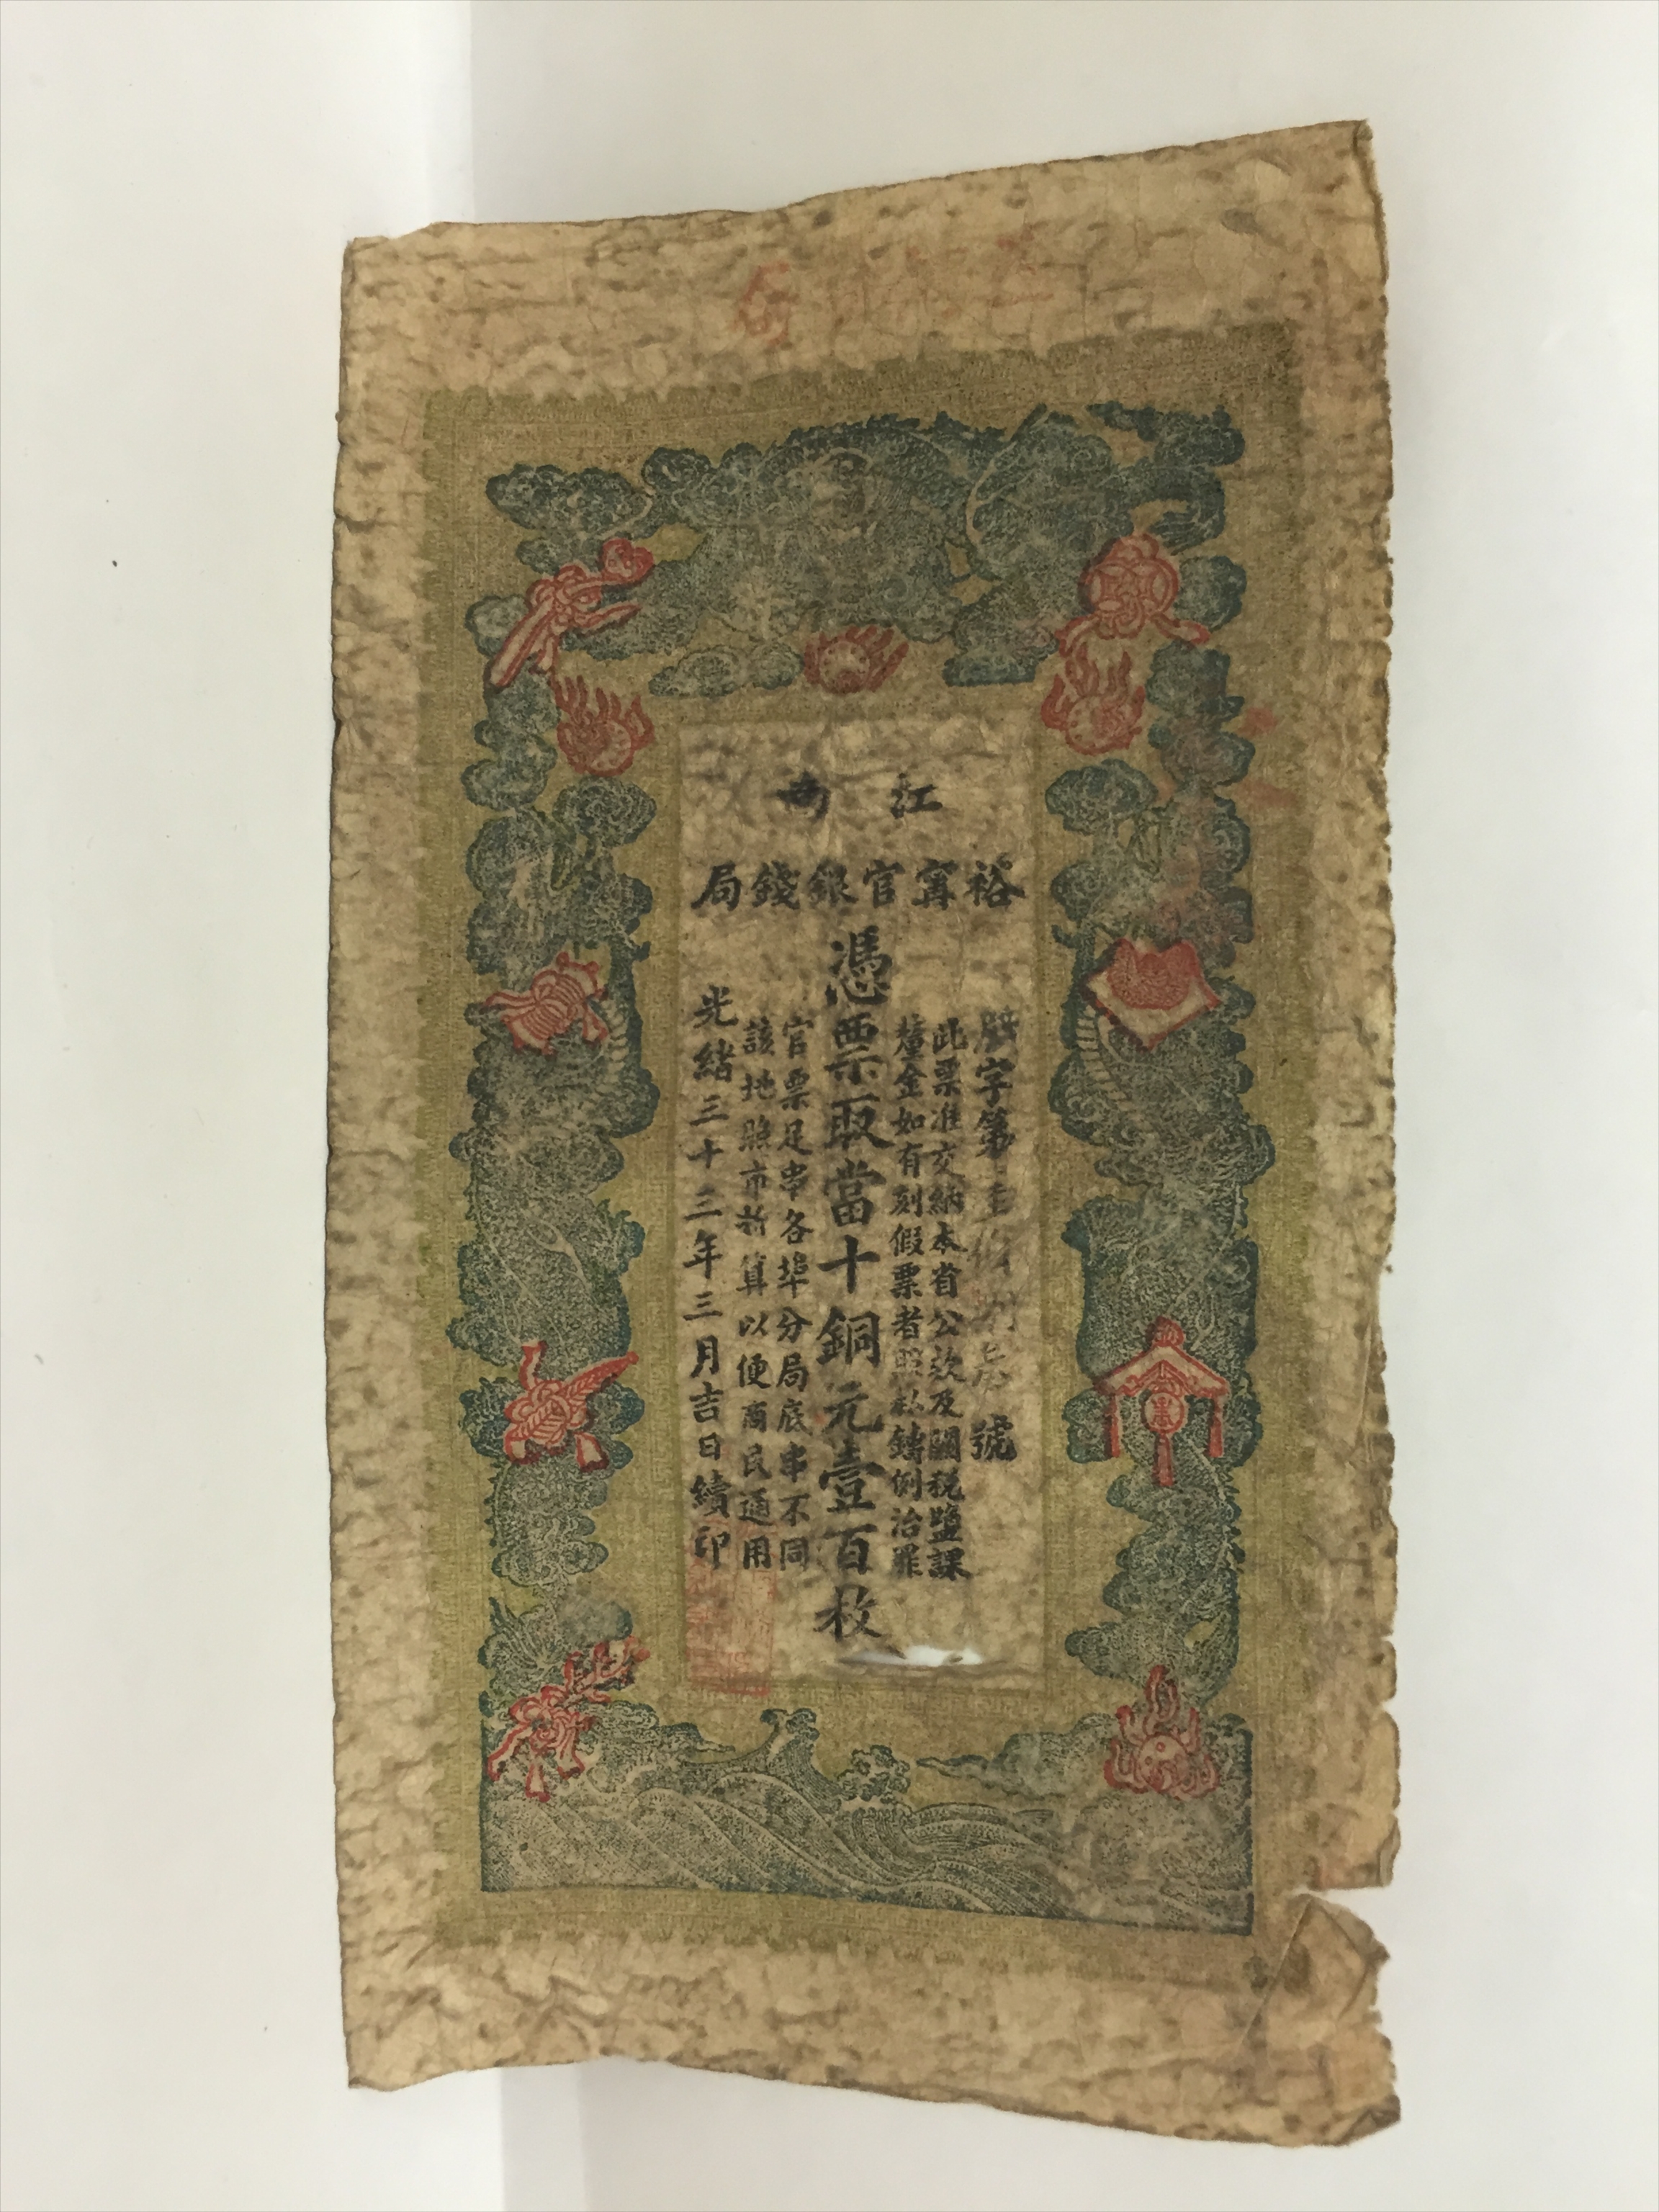 江南
裕甯官銀錢局
字第
號
此票准交納本省公款及關稅鹽課
釐金如有刻假票者照私鑄例治罪
憑票取當十銅元壹百枚
官票足串各埠分局底串不同
該地照市折算以便商民通用
光緒三十三年三月吉日續印